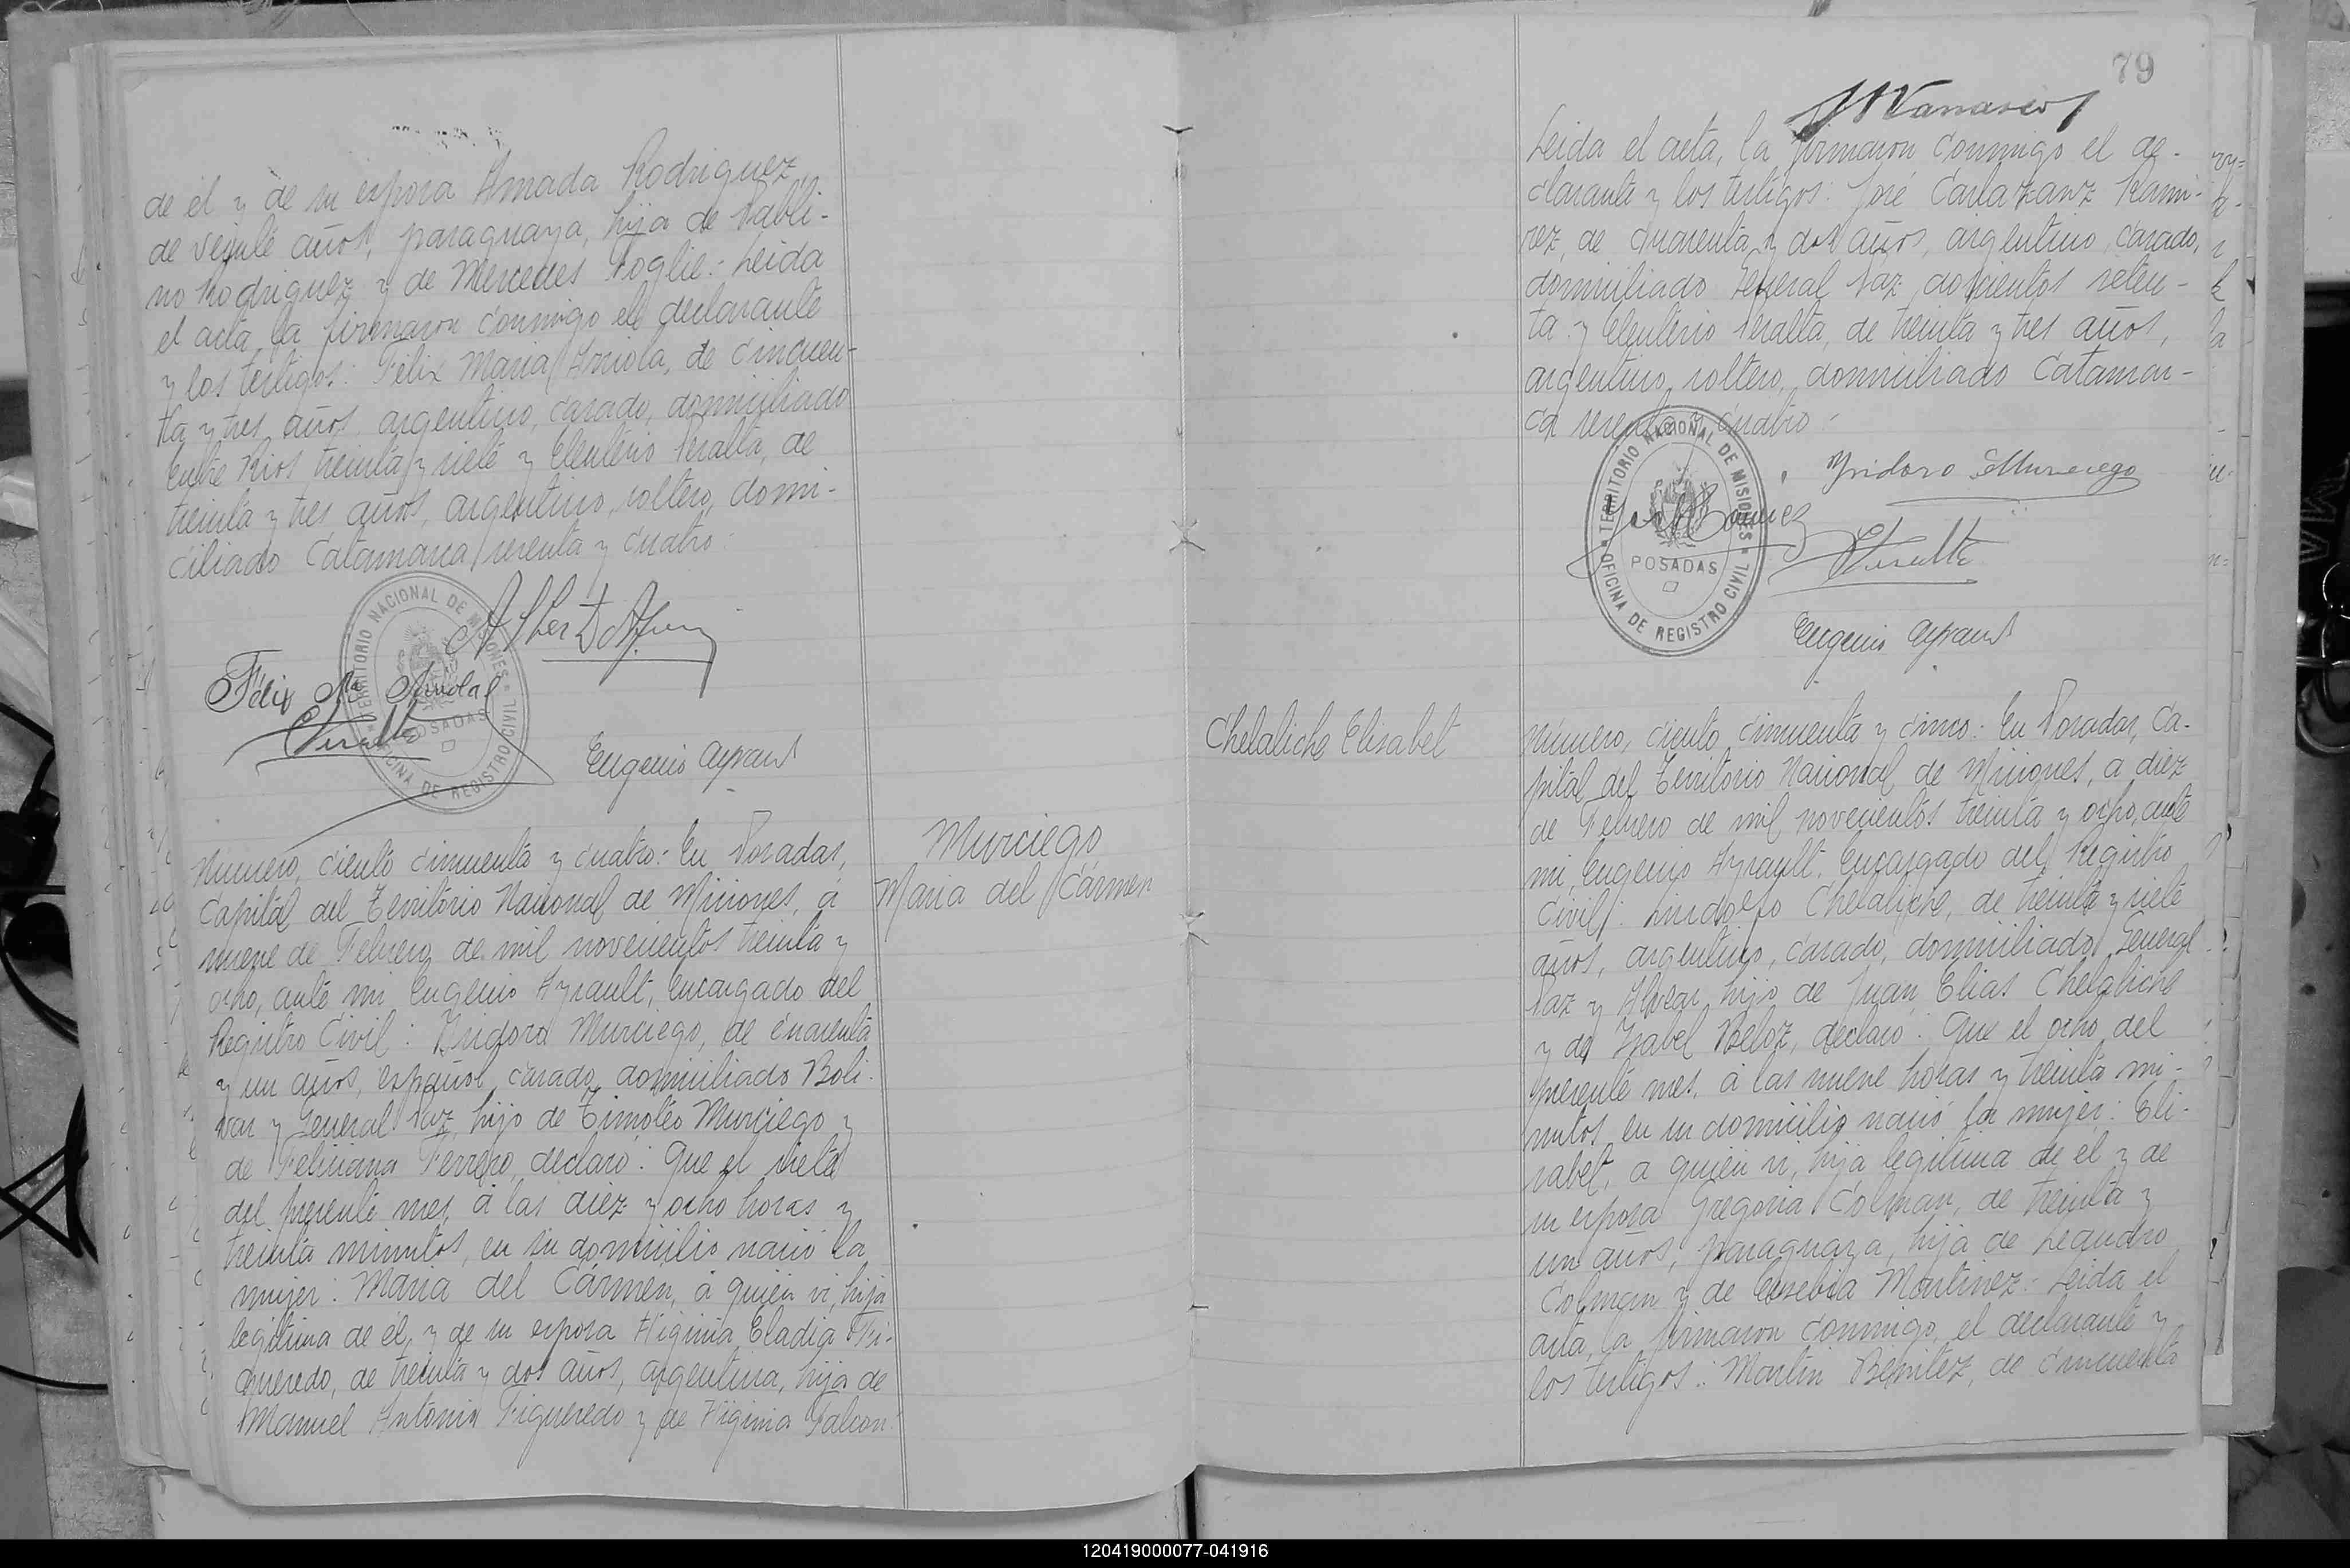 de él y de su esposa Amada Rodriguez,
de veinte años, paraguaya, hija de Pabli-
no Rodriguez y de Mercedes Poglie.- Leida
el acta, la firmaron conmigo el declarante
y los testigos: Félix Maria Arriola, de cincuen-
ta y tres años, argentino, casado, domiciliado
Entre Rios treinta y siete y Eleuterio Peralta, de
treinta y tres años, argentino, soltero, domi-
ciliado Catamarca sesenta y cuatro.-
TERRITORIO NACIONAL DE MISIONES
POSADAS
OFICINA DE REGISTRO CIVIL
Félix Ma Arriola
Peralta
Eugenio Ayrault
Murciego
Maria del Cármen
Número, ciento cincuenta y cuatro: En Posadas,
Capital del Territorio Nacional de Misiones, a
nueve de Febrero de mil novecientos treinta y
ocho, ante mi, Eugenio Ayrault, Encargado del
Registro Civil: Ysidoro Murciego, de cuarenta
y un años, español, casado, domiciliado Boli-
var y General Paz, hijo de Timoteo Murciego y
de Feliciana Ferrero, declaró: Que el siete
del presente mes, á las diez y ocho horas y
treinta minutos, en su domicilio nació la
mujer: Maria del Cármen, á quién vi, hija
legitima de él, y de su esposa Higinia Eladia Fi-
gueredo, de treinta y dos años, argentina, hija de
Manuel Antonio Figueredo y de Higinia Falcon.-
79
Leida el acta, la firmaron conmigo el de-
clarante y los testigos: José Carlazanz Rami-
rez, de cuarenta y dos años, argentino, casado,
domiciliado General Paz doscientos seten-
ta y Eleuterio Peralta, de treinta y tres años,
argentino, soltero, domiciliado Catamar-
ca sesenta y cuatro.-
TERRITORIO NACIONAL DE MISIONES
POSADAS
OFICINA DE REGISTRO CIVIL
Ysidoro Murciego
Peralta
Eugenio Ayrault
Chelaliche Elisabet
Número, ciento cincuenta y cinco: En Posadas, Ca-
pital del Territorio Nacional de Misiones, a diez
de Febrero de mil novecientos treinta y ocho, ante
mi, Eugenio Ayrault, Encargado del Registro
Civil: Lindolfo Chelaliche, de treinta y siete
años, argentino, casado, domiciliado General
Paz y Alvear, hijo de Juan Elias Chelaliche
y de Ysabel Beloz, declaró: Que el ocho del
presente mes, á las nueve horas y treinta mi-
nutos, en su domicilio nació la mujer: Eli-
sabet, a quién vi, hija legitima de él y de
su esposa Gregoria Colman, de treinta y
un años, paraguaya, hija de Leandro
Colman y de Eusebia Martinez.- Leida el
acta, la firmaron conmigo, el declarante y
los testigos: Martin Benitez, de cincuenta
120419000077-041916